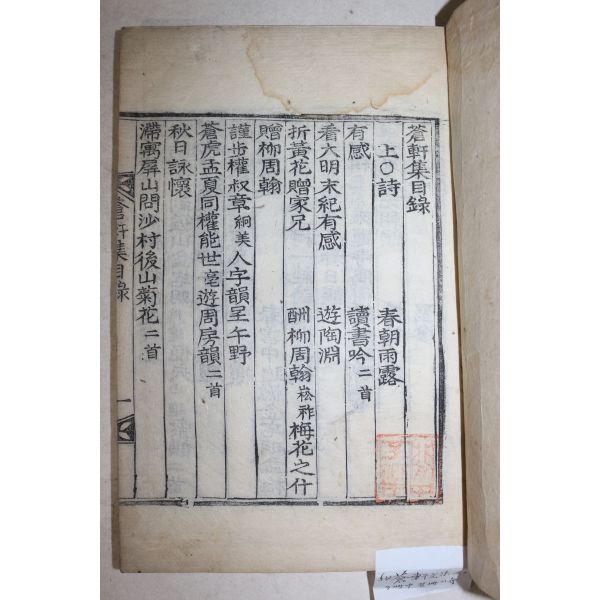 蒼軒集目錄
上○詩　春朝雨露
有感　讀書吟二首
看大明末紀有感　遊陶淵
折黃花贈家兄　酬柳周翰崧祚梅花之什
贈柳周翰
謹步權叔章絅美人字韻呈午野
蒼虎孟夏同權能世毫遊周房韻二首
秋日詠懷
滯寓屛山問沙村後山菊花二首
蒼軒集目錄
一